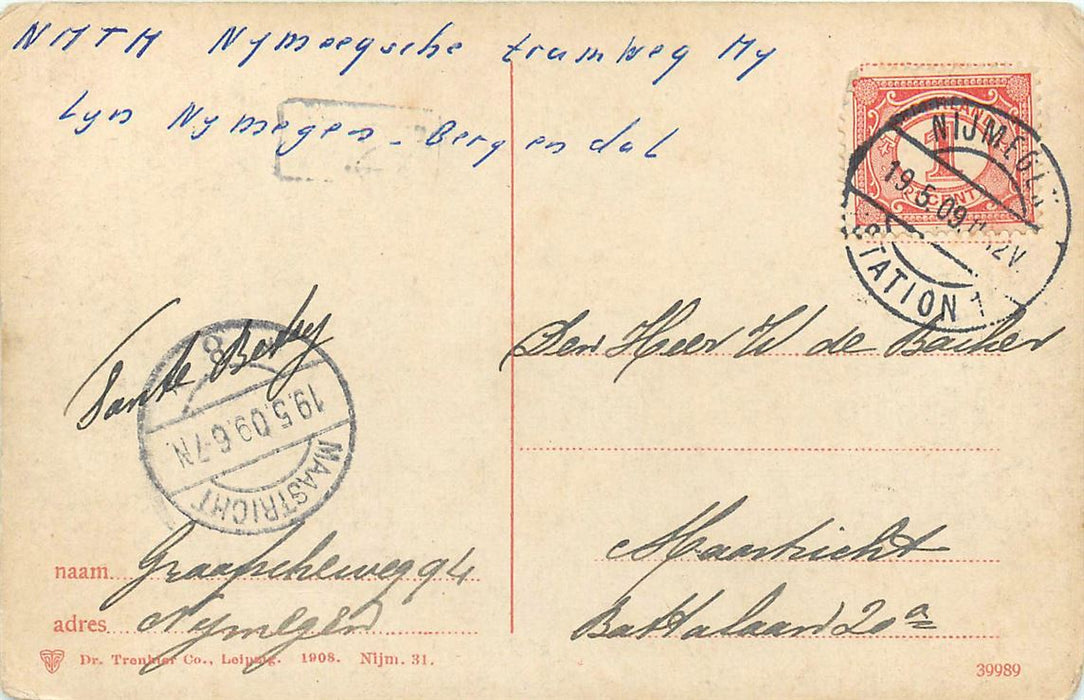 NMTM Nymeegsche tramweg My
Lyn Nymegen - Bergendal
1
CENT
NIJMEGEN
19.5.09.
12V.
STATION 1
Tante Betsy
8
19.5.09.6-7N.
MAASTRICHT
Den Heer W de Backer
Maastricht
Battalaan 20a
naam Graafscheweg 94
adres Nymegen
Dr. Trenkler Co., Leipzig. 1908. Nijm. 31.
39989